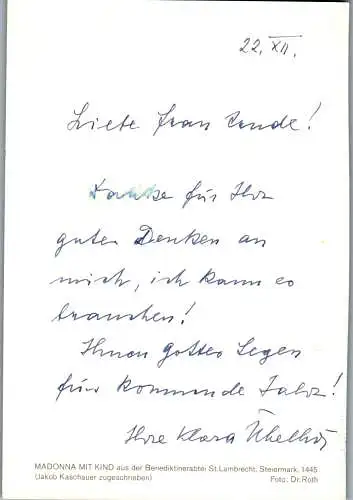 22. XII.
Liebe Frau Lende!
Danke für Ihr
gutes Denken an
mich, ich kann es
brauchen!
Ihnen Gottes Segen
fürs kommende Jahr!
Ihre Klara
MADONNA MIT KIND aus der Benediktinerabtei St. Lambrecht, Steiermark, 1445
(Jakob Kaschauer zugeschrieben) Foto: Dr. Roth